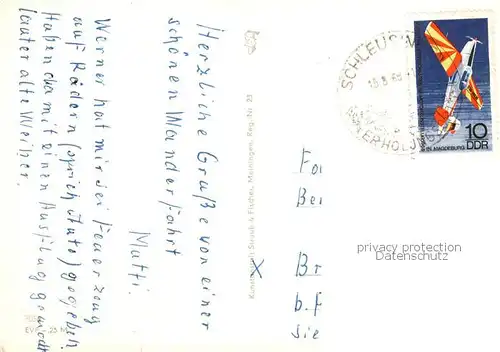 Herzliche Grüße von einer
schönen Wanderfahrt
Mutti.
Werner hat mir sei Feuerzeug
auf Rädern (sprich Auto) gegeben.
Haben damit einen Ausflug gemacht
lauter alte Weiber.
Kunstverlag Straub & Fischer, Meiningen, Reg.-Nr. 23
EVP -,25 M
SCHLEUSI
ERHOLU
10
DDR
IN MAGDEBURG
For
Bei
x Br
b. F
sie
privacy protection
Datenschutz